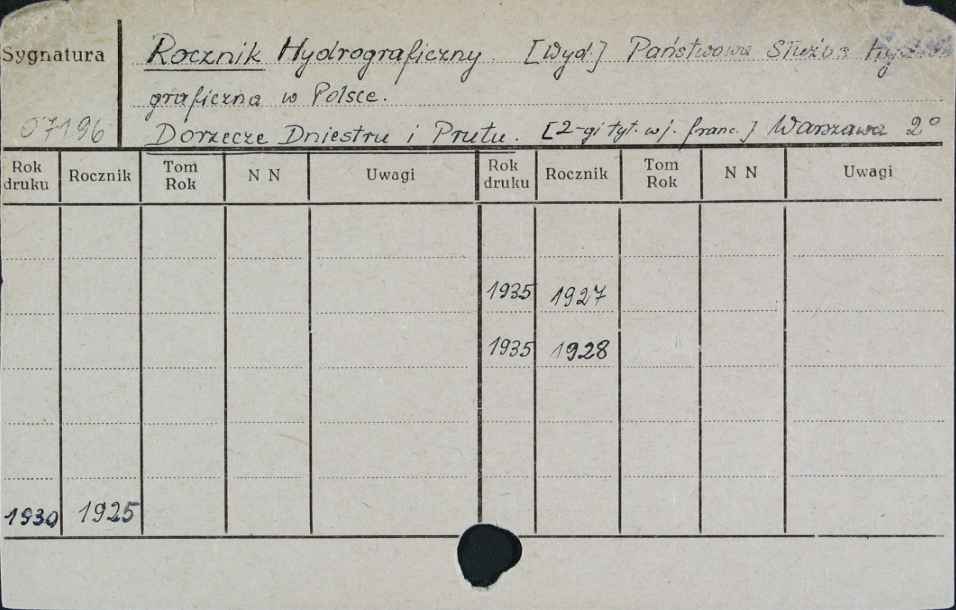 Sygnatura
Rocznik Hydrograficzny. [Wyd.] Państwowa Służba
graficzna w Polsce.
07196
Dorzecze Dniestru i Prutu. [2-gi tyt. w j. franc.] Warszawa 2°
Rok druku Rocznik Tom Rok N N Uwagi Rok druku Rocznik Tom Rok N N Uwagi
1935 1927
1935 1928
1930 1925